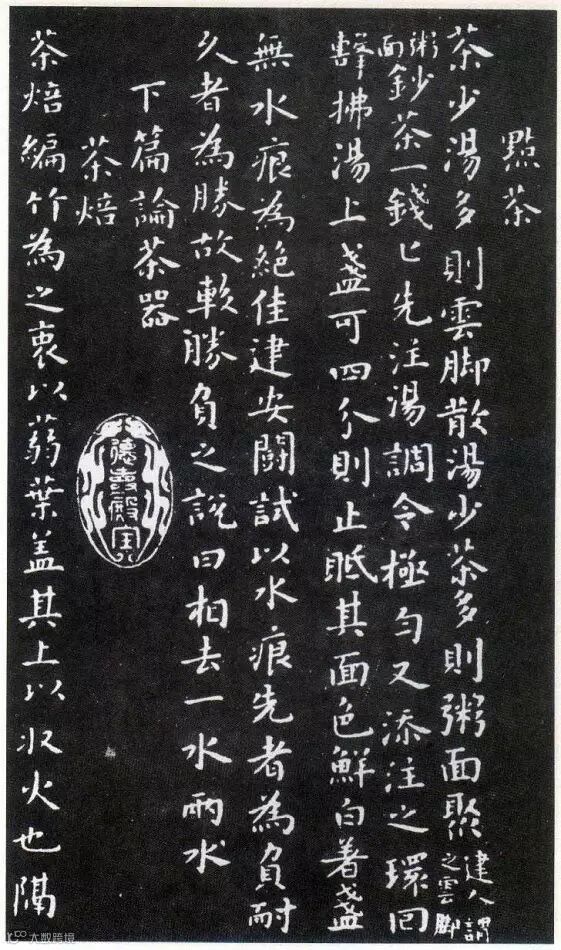 點茶
茶少湯多則雲脚散湯少茶多則粥面聚建人謂之雲脚
粥面鈔茶一錢匕先注湯調令極勻又添注之環回
擊拂湯上盞可四分則止眡其面色鮮白著盞
無水痕為絕佳建安鬭試以水痕先者為負耐
久者為勝故較勝負之說曰相去一水兩水
下篇論茶器
茶焙
德壽殿寶
茶焙編竹為之裹以蒻葉盖其上以収火也隔
大数跨境